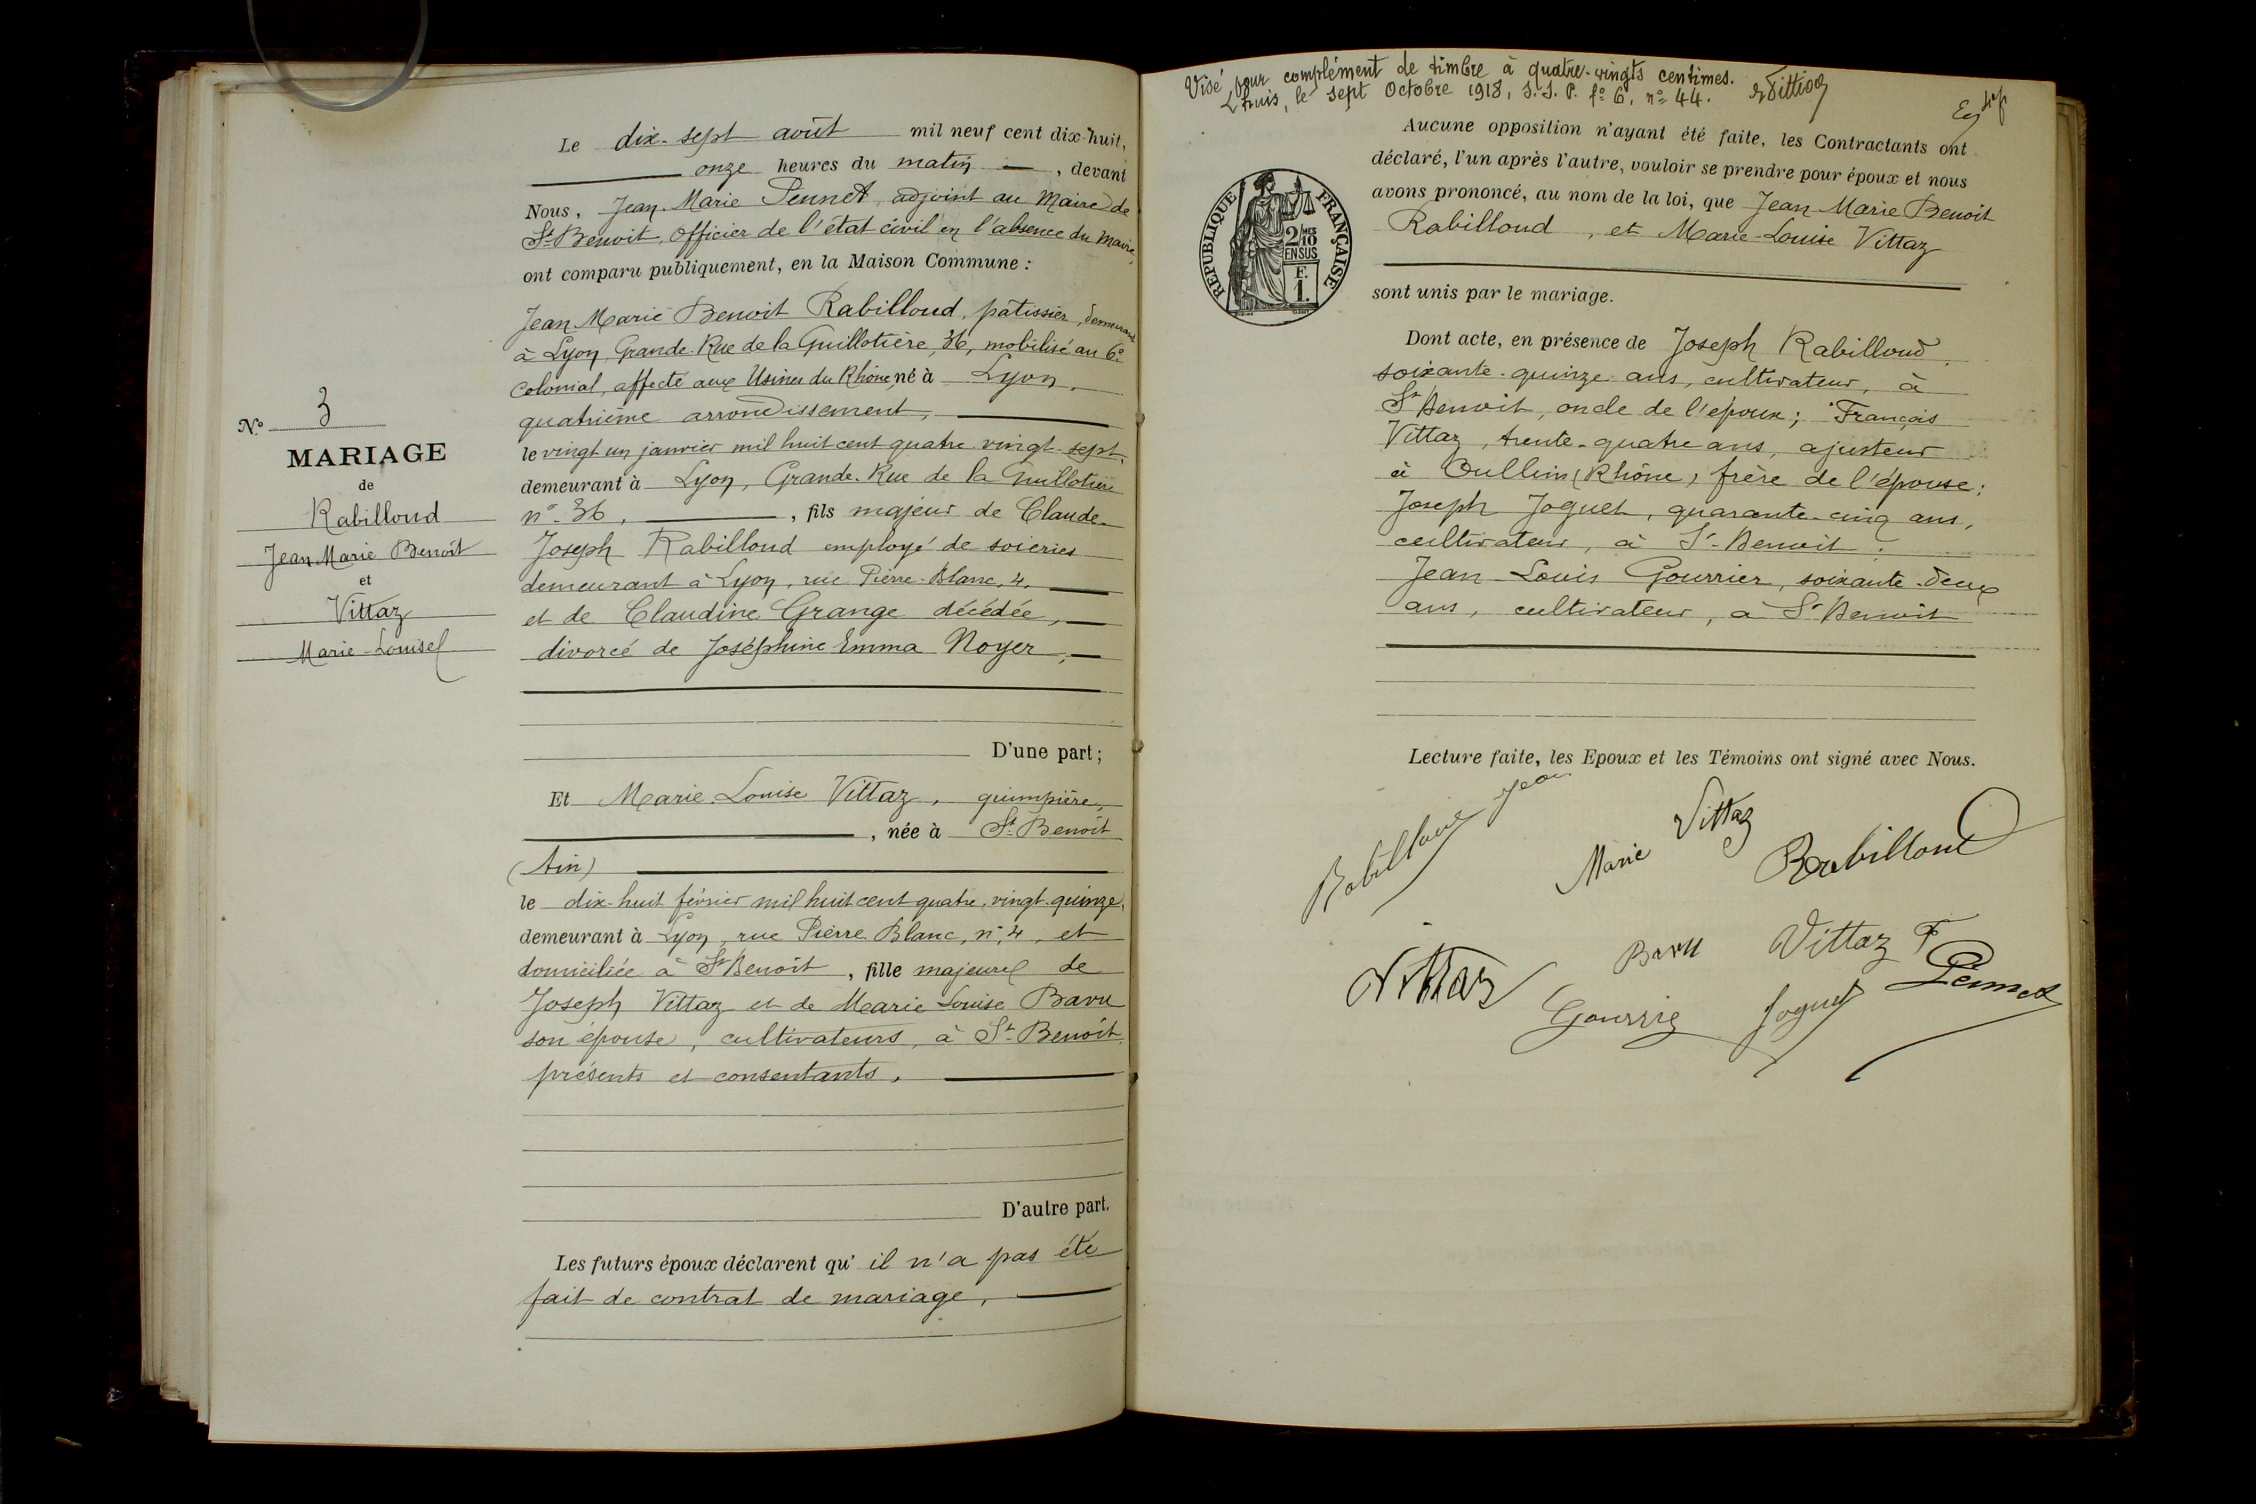 Le dix-sept août mil neuf cent dix-huit,
onze heures du matin, devant
Nous, Jean-Marie Pennet, adjoint au Maire de
St-Benoit, officier de l'état civil en l'absence du Maire,
ont comparu publiquement, en la Maison Commune :
Jean-Marie Benoit Rabilloud, pâtissier, demeurant
à Lyon, Grande-Rue de la Guillotière, 36, mobilisé au 6e
colonial, affecté aux Usines du Rhône, né à Lyon,
quatrième arrondissement,
le vingt un janvier mil huit cent quatre vingt-sept,
demeurant à Lyon, Grande-Rue de la Guillotière
n° 36, fils majeur de Claude-
Joseph Rabilloud employé de soieries
demeurant à Lyon, rue Pierre-Blanc, 4,
et de Claudine Grange décédée,
divorcé de Joséphine Emma Noyer,
D'une part ;
N° 3
MARIAGE
de
Rabilloud
Jean-Marie Benoît
et
Vittaz
Marie-Louise
Et Marie-Louise Vittaz, guimpière,
, née à St-Benoît
(Ain)
le dix-huit février mil huit cent quatre-vingt-quinze,
demeurant à Lyon, rue Pierre Blanc, n° 4, et
domiciliée à St Benoît, fille majeure de
Joseph Vittaz et de Marie Louise Bavu
son épouse, cultivateurs, à St-Benoît,
présents et consentants,
D'autre part.
Les futurs époux déclarent qu'il n'a pas été
fait de contrat de mariage,
Visé pour complément de timbre à quatre-vingts centimes.
Lhuis, le sept Octobre 1918, S.S.P. f° 6, n° 44.
RÉPUBLIQUE FRANÇAISE
2/10 MES
EN SUS
F.
1.
Aucune opposition n'ayant été faite, les Contractants ont
déclaré, l'un après l'autre, vouloir se prendre pour époux et nous
avons prononcé, au nom de la loi, que Jean-Marie Benoit
Rabilloud, et Marie-Louise Vittaz
sont unis par le mariage.
Dont acte, en présence de Joseph Rabilloud,
soixante-quinze ans, cultivateur, à
St Benoit, oncle de l'époux ; François
Vittaz, trente-quatre ans, ajusteur
à Oullins (Rhône) frère de l'épouse ;
Joseph Joguet, quarante-cinq ans,
cultivateur, à St-Benoit ;
Jean-Louis Gourrier, soixante-deux
ans, cultivateur, à St-Benoit
Lecture faite, les Epoux et les Témoins ont signé avec Nous.
Rabilloud Jean
Marie Vittaz
Rabilloud
Vittaz
Bavu
Vittaz F
Pennet
Gourrier
Joguet